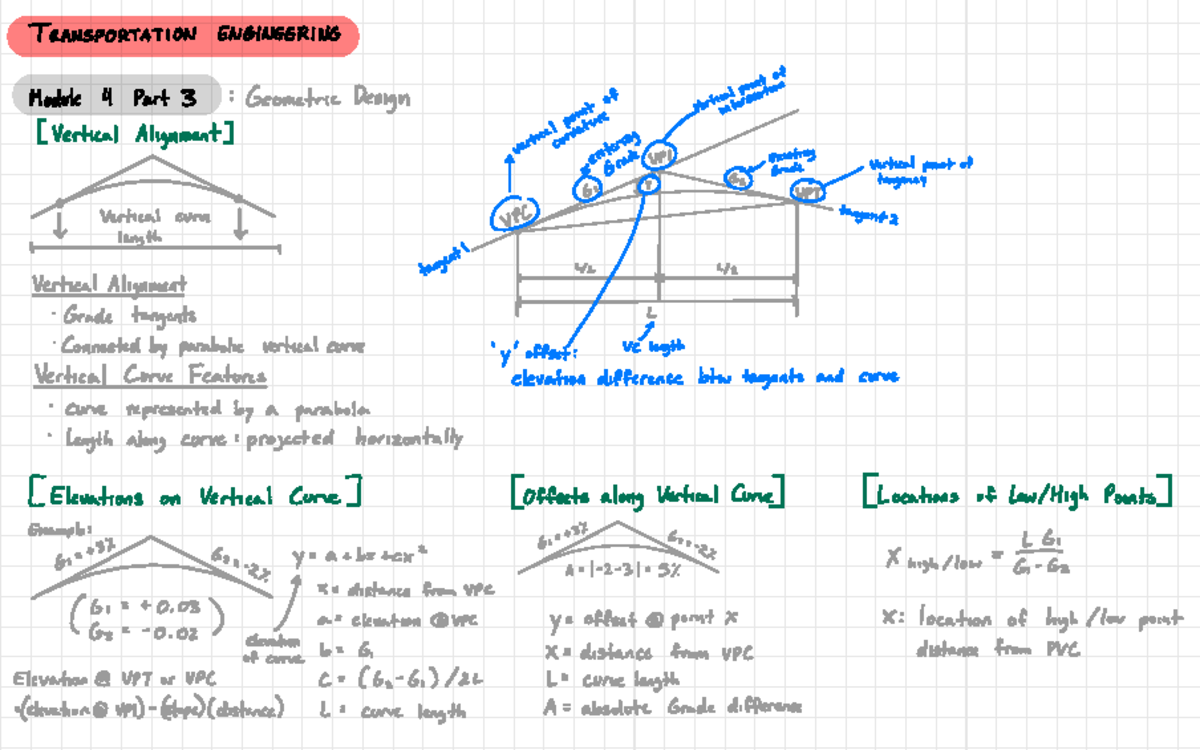 TRANSPORTATION ENGINEERING
Module 4 Part 3 : Geometric Design
[Vertical Alignment]
Vertical curve
length
Vertical Alignment
· Grade tangents
· Connected by parabolic vertical curve
Vertical Curve Features
· curve represented by a parabola
· Length along curve: projected horizontally
vertical point of
curvature
entering
Grade
vertical point of
intersection
existing
Grade
vertical point of
tangency
VPC
G1
VPI
Y
G2
VPT
tangent 1
tangent 2
L/2
L/2
L
VC length
'y' offset:
elevation difference btw tangents and curve
[Elevations on Vertical Curve]
Example:
G1 = +3%
G2 = -2%
(G1 = +0.03
G2 = -0.02)
elevation
of curve
Elevation @ VPT or VPC
=(elevation @ VPI) - (slope)(distance)
y = a + bx + cx²
x = distance from VPC
a = elevation @ VPC
b = G1
C = (G2 - G1) / 2L
L = curve length
[Offsets along Vertical Curve]
G1 = +3%
G2 = -2%
A = |-2-3| = 5%
y = offset @ point X
X = distance from VPC
L = curve length
A = absolute Grade difference
[Locations of Low/High Points]
X high/low = L G1 / G1 - G2
X: location of high/low point
distance from PVC